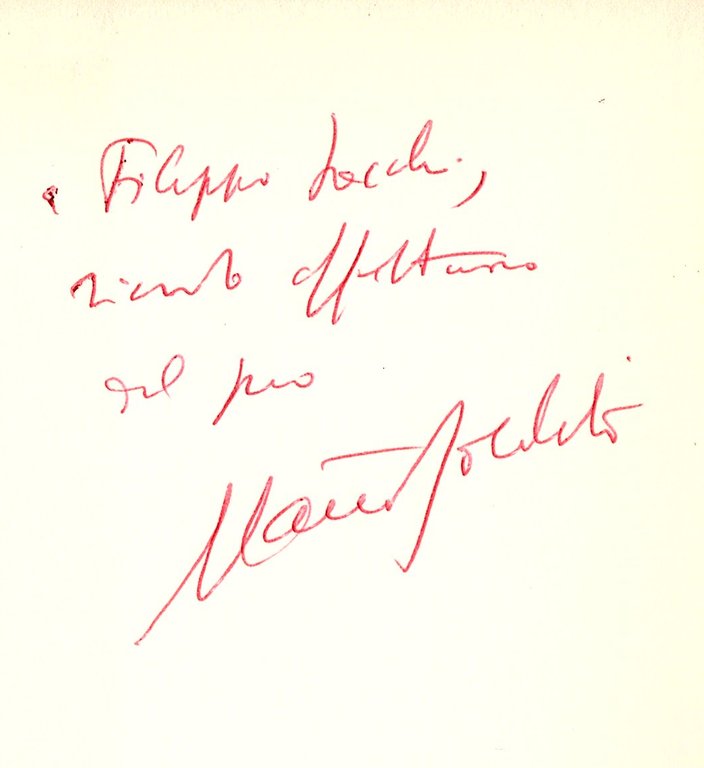 a Filippo Sacchi,
ricordo affettuoso
del suo
Mario Soldati